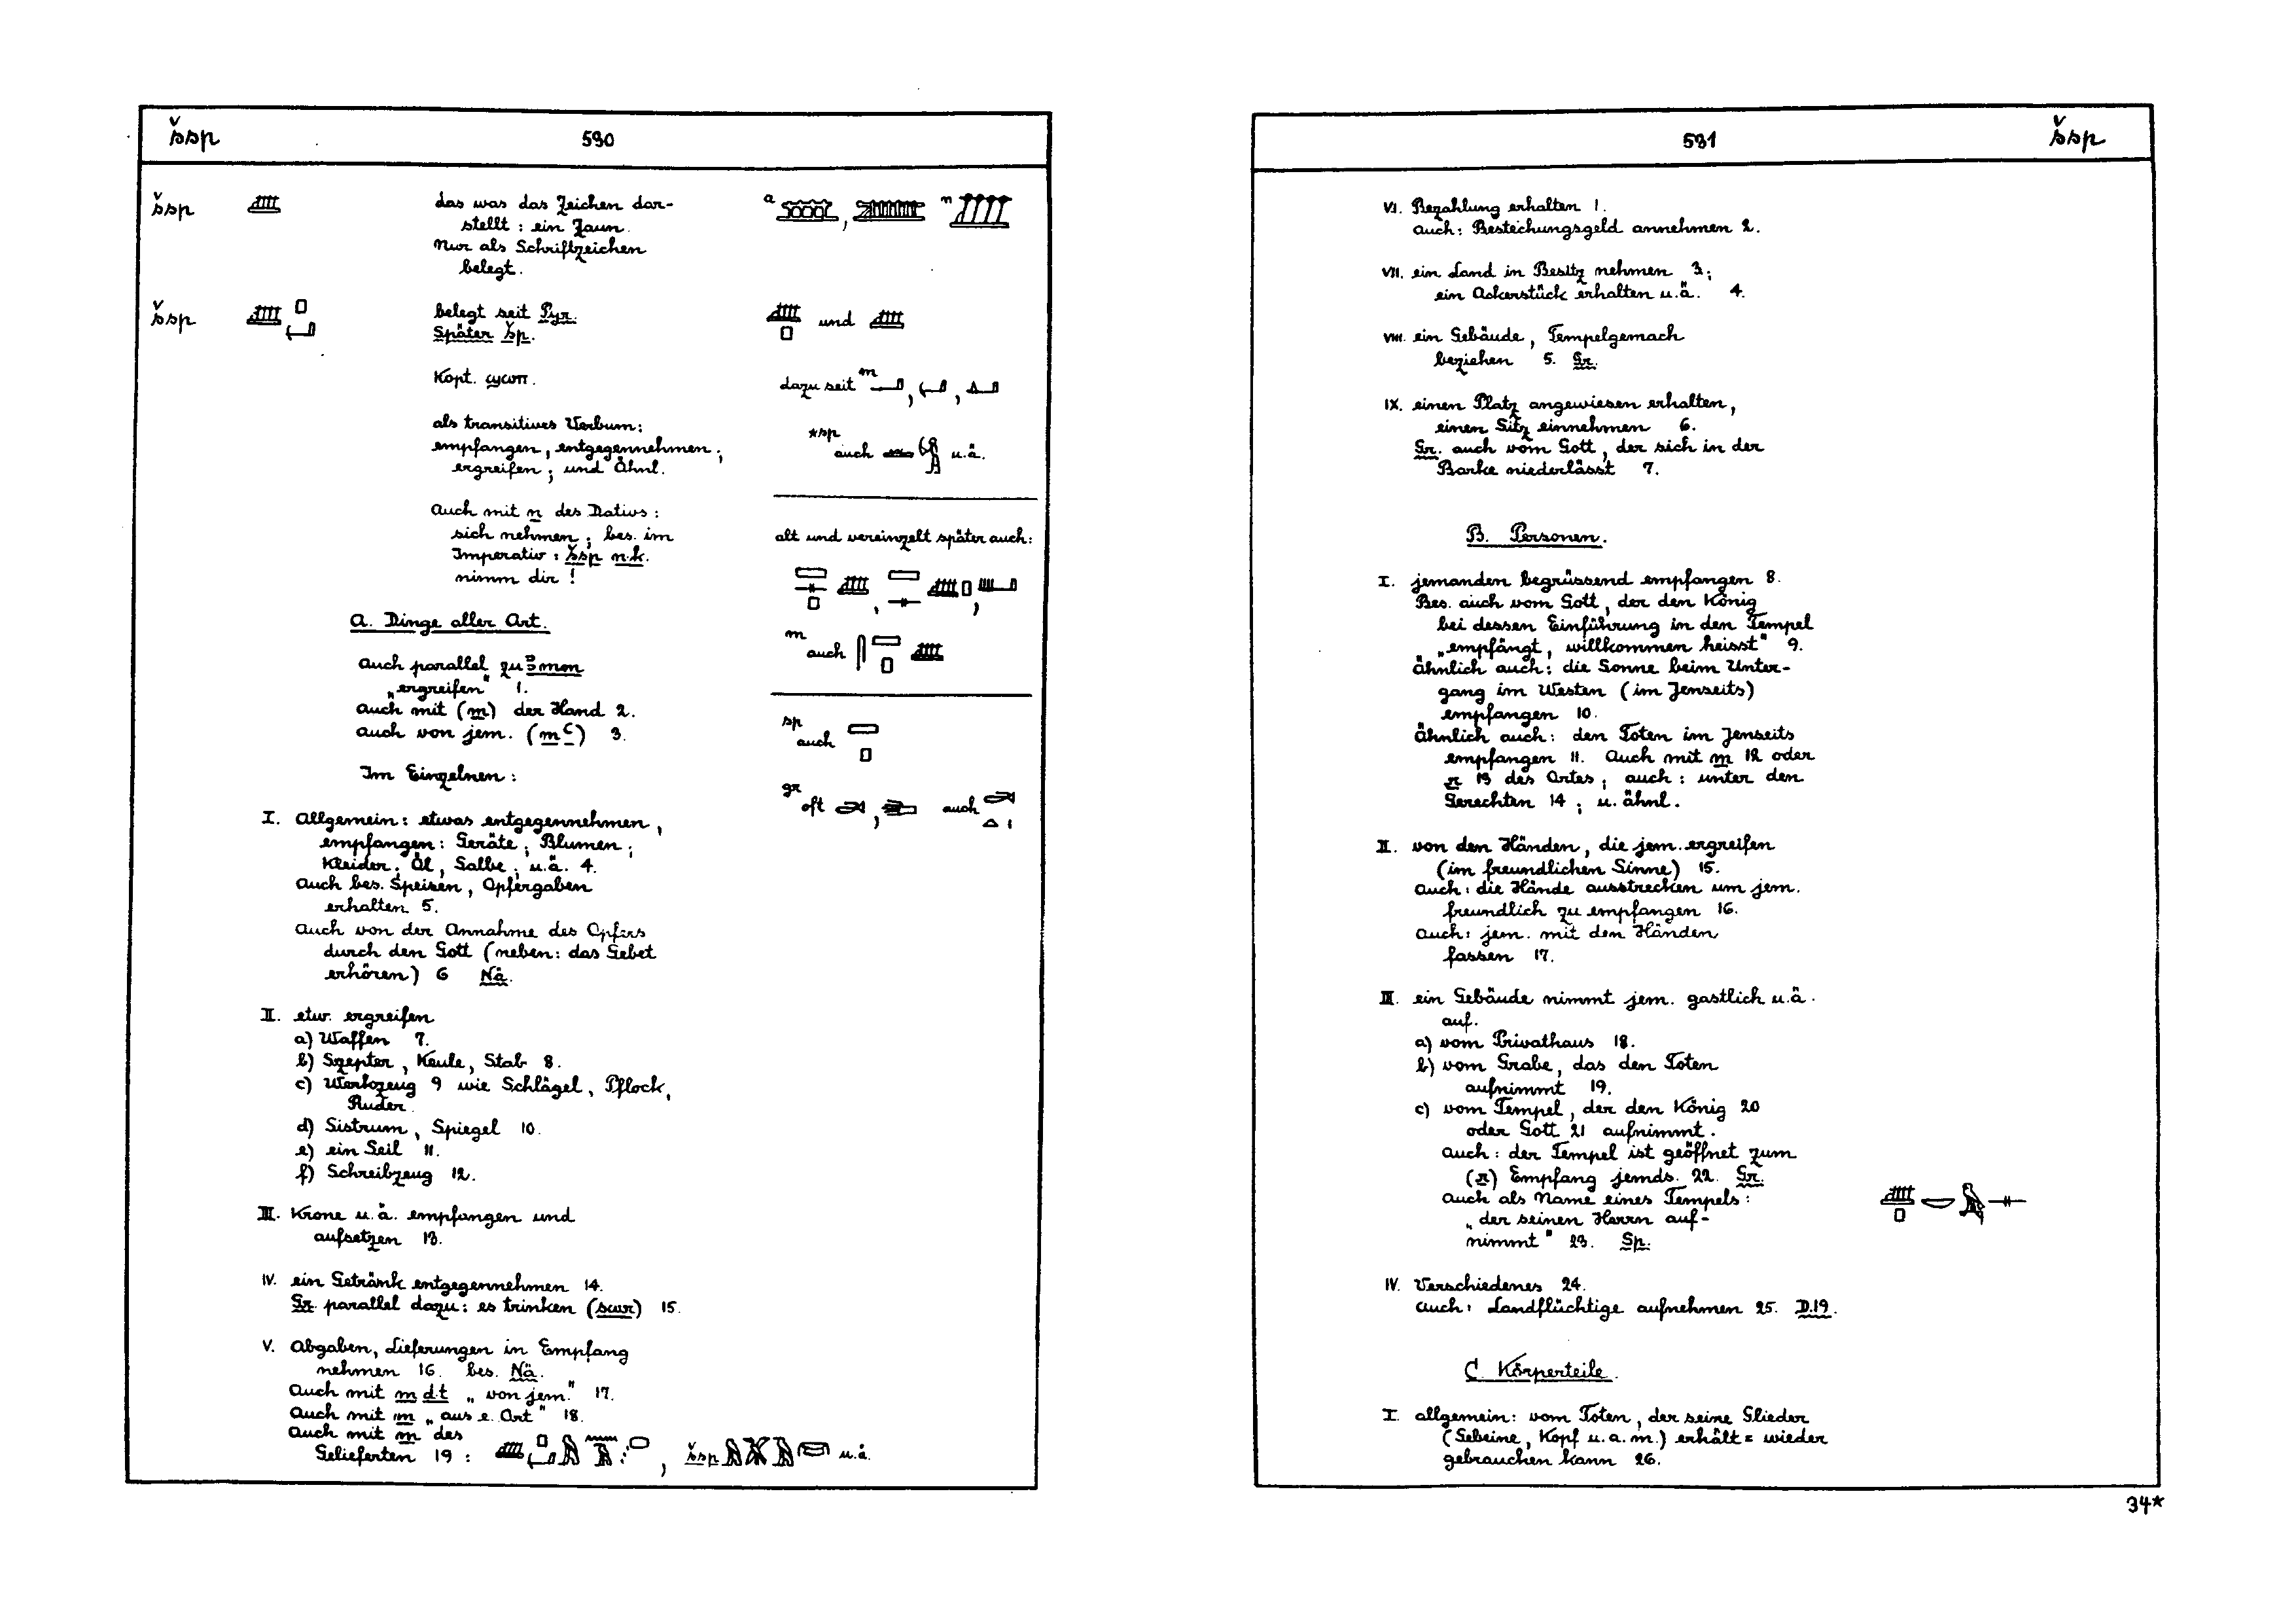 šsp 530
šsp das was das Zeichen dar-
stellt : ein Zaun.
Nur als Schriftzeichen
belegt.
a , n
šsp belegt seit Pyr.
Später šp.
Kopt. ϣⲱⲡ.
als transitives Verbum:
empfangen, entgegennehmen;
ergreifen; und Ähnl.
Auch mit n des Dativs:
sich nehmen; bes. im
Imperativ: šsp n.k.
nimm dir!
und
dazu seit m , ,
*sp
auch u.ä.
alt und vereinzelt später auch:
, ,
m
auch
sp
auch
gr
oft , auch
A. Dinge aller Art.
Auch parallel zu 3mm
„ergreifen“ 1.
Auch mit (m) der Hand 2.
Auch von jem. (mꜥ) 3.
Im Einzelnen:
I. Allgemein: etwas entgegennehmen,
empfangen: Geräte; Blumen;
Kleider; Öl, Salbe; u.ä. 4.
Auch bes. Speisen, Opfergaben
erhalten 5.
Auch von der Annahme des Opfers
durch den Gott (neben: das Gebet
erhören) 6 Nä.
II. etw. ergreifen
a) Waffen 7.
b) Szepter, Keule, Stab 8.
c) Werkzeug 9 wie Schlägel, Pflock,
Ruder.
d) Sistrum, Spiegel 10.
e) ein Seil 11.
f) Schreibzeug 12.
III. Krone u.ä. empfangen und
aufsetzen 13.
IV. ein Getränk entgegennehmen 14.
Gr. parallel dazu: es trinken (swr) 15.
V. Abgaben, Lieferungen in Empfang
nehmen 16. bes. Nä.
Auch mit m d.t „von jem.“ 17.
Auch mit m „aus e. Ort“ 18.
Auch mit m des
Gelieferten 19 : , šsp u.ä.
531 šsp
VI. Bezahlung erhalten 1.
auch: Bestechungsgeld annehmen 2.
VII. ein Land in Besitz nehmen 3;
ein Ackerstück erhalten u.ä. 4.
VIII. ein Gebäude, Tempelgemach
beziehen 5. Gr.
IX. einen Platz angewiesen erhalten,
einen Sitz einnehmen 6.
Gr. auch vom Gott, der sich in der
Barke niederlässt 7.
B. Personen.
I. jemanden begrüssend empfangen 8.
Bes. auch vom Gott, der den König
bei dessen Einführung in den Tempel
„empfängt, willkommen heisst“ 9.
Ähnlich auch: die Sonne beim Unter-
gang im Westen (im Jenseits)
empfangen 10.
Ähnlich auch: den Toten im Jenseits
empfangen 11. Auch mit m 12 oder
r 13 des Ortes; auch: unter den
Gerechten 14; u. ähnl.
II. von den Händen, die jem. ergreifen
(im freundlichen Sinne) 15.
Auch: die Hände ausstrecken um jem.
freundlich zu empfangen 16.
Auch: jem. mit den Händen
fassen 17.
III. ein Gebäude nimmt jem. gastlich u.ä.
auf.
a) vom Privathaus 18.
b) vom Grabe, das den Toten
aufnimmt 19.
c) vom Tempel, der den König 20
oder Gott 21 aufnimmt.
Auch: der Tempel ist geöffnet zum
(r) Empfang jemds. 22. Gr.
Auch als Name eines Tempels:
„der seinen Herrn auf-
nimmt“ 23. Sp.
IV. Verschiedenes 24.
Auch: Landflüchtige aufnehmen 25. D.19.
C. Körperteile.
I. allgemein: vom Toten, der seine Glieder
(Gebeine, Kopf u.a.m.) erhält = wieder
gebrauchen kann 26.
34*